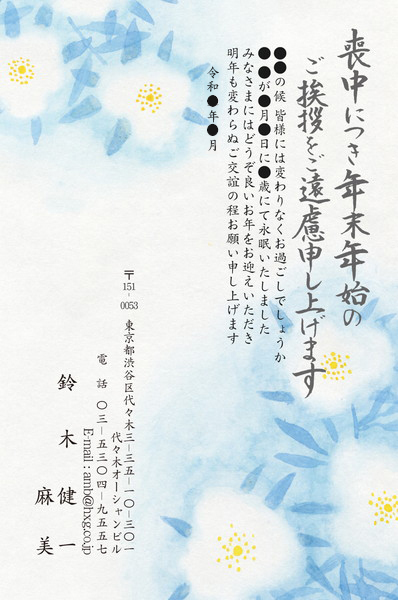 喪中につき年末年始の
ご挨拶をご遠慮申し上げます
●●の候 皆様には変わりなくお過ごしでしょうか
●●が●月●日に●歳にて永眠いたしました
みなさまにはどうぞ良いお年をお迎えいただき
明年も変わらぬご交誼の程お願い申し上げます
令和●年●月
〒151-0053 東京都渋谷区代々木三-三五-一〇-三〇一
代々木オーシャンビル
電話 〇三-五三〇四-九五五七
E-mail:amb@hxg.co.jp
鈴木健一
麻美